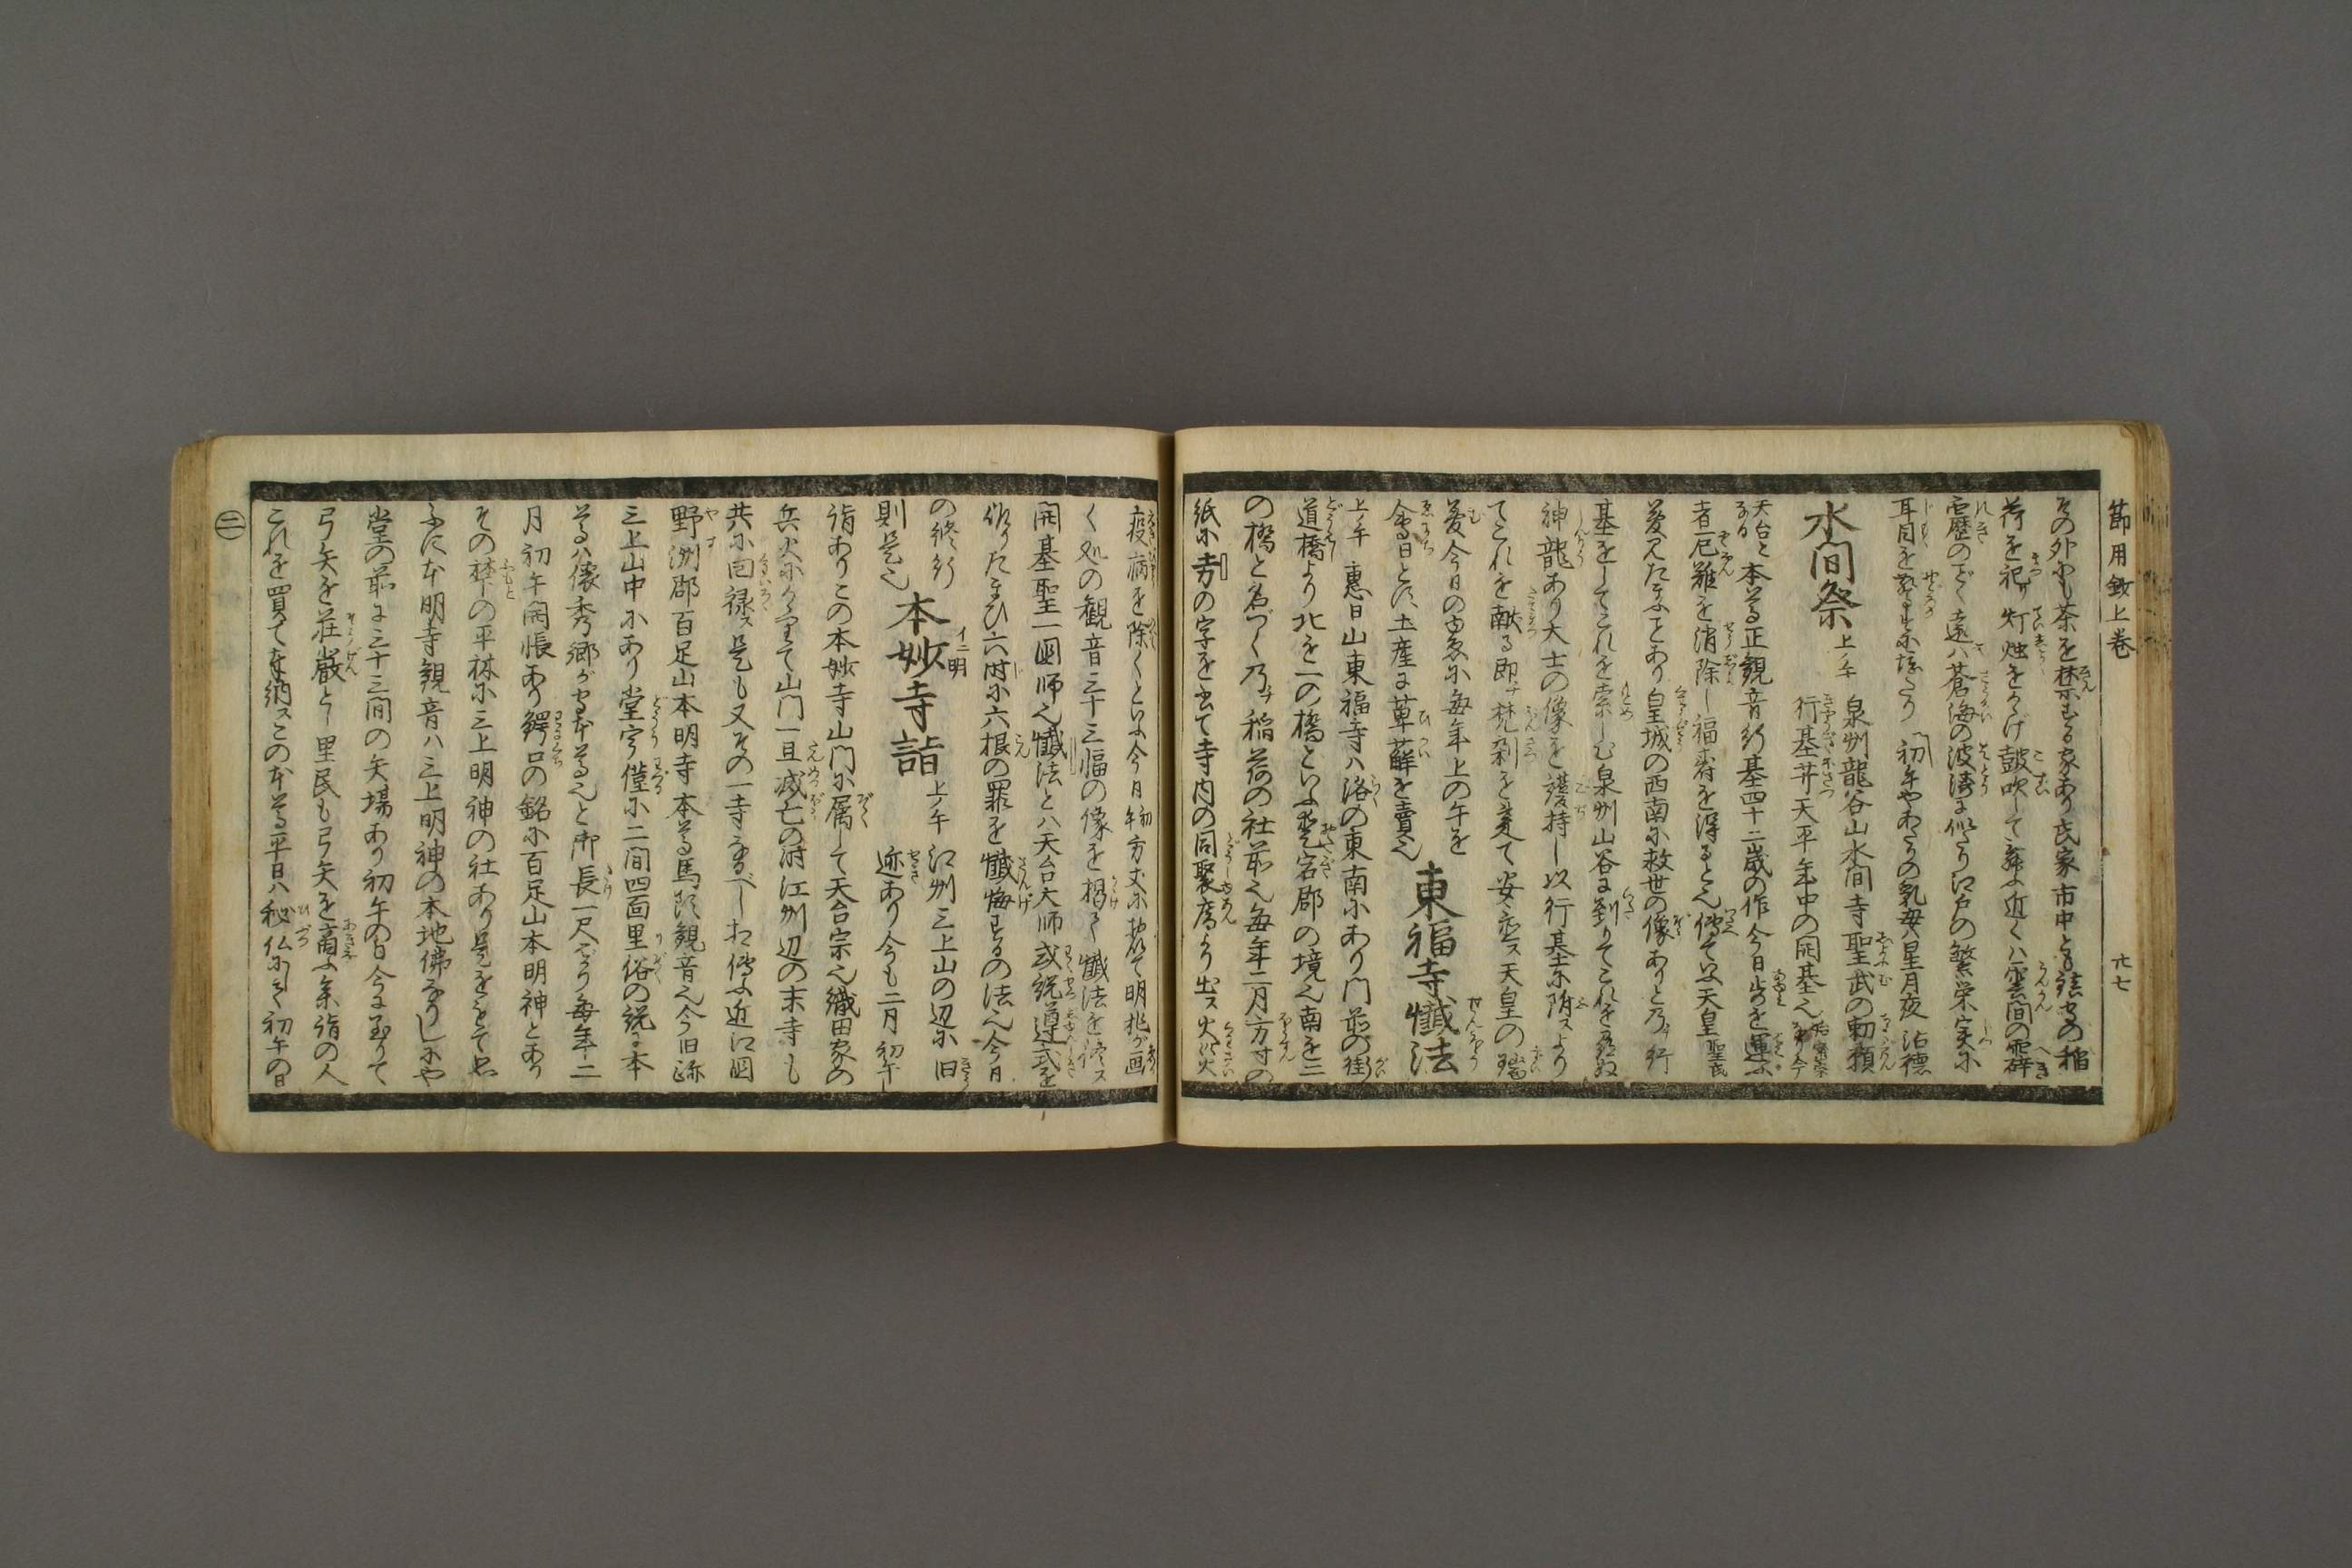 節用敘上卷
廿七
その外にも茶を禁ずる家あり民家市中とも鎮守の稲
荷を祀り灯燭をかゝげ鼓吹して舞ふ近くハ雲間の霹
靂のごく遠ハ蒼海の波濤に似たり江戸の繁栄実に
耳目を 初午やわたりの乳母ハ星月夜 沾徳
水間祭 上ノ午
泉州龍谷山水間寺聖武の勅願
行基菩天平年中の開基也
天台と本尊正観音行基四十二歳の作今日歩を運ふ
者厄難を消除し福寿を得ると也傳て云天皇聖武
夢見たまふことあり皇城の西南に救世の像ありと乃チ行
基をしてこれを索しむ泉州山谷に到りてこれを尋ぬ
神龍あり大士の像を護持し以行基に附スより
てこれを献る即チ梵刹を建て安置ス天皇の瑞
夢今日の古象に毎年上の午を
會日とス土産に萆薢を賣也
東福寺懺法
上ノ午
惠日山東福寺ハ洛の東南にあり門前の街
道橋より北を一の橋といふ愛宕郡の境也南を三
の橋と名づく乃チ稲荷の社前也毎年二月方寸の
紙に寺内の同聚庵より出ス火災
疫病を除くといふ今日初午方丈に於て明兆が画
く処の観音三十三幅の像を掲く懺法を修ス
開基聖一國師也懺法とハ天台大師或説遵式を
作りたまひ六時に六根の罪を懺悔するの法也今日
の終行
則是也
本妙寺詣 上ノ午
イニ明
江州三上山の辺に旧
迹あり今も二月初午
詣ありこの本妙寺山門に属して天台宗也織田家の
兵火にかゝりて山門一旦滅亡の時江州辺の末寺も
共に回禄ス是も又その一寺なるべし相傳ふ近江國
野洲郡百足山本明寺本尊馬頭観音也今旧跡
三上山中にあり堂宇僅に二間四面里俗の説に本
尊ハ俵秀郷が守本尊也と御長一尺ばかり毎年二
月初午開帳あり鰐口の銘に百足山本明神とあり
その林の平林に三上明神の社あり是をもて思
ふに本明寺観音ハ三上明神の本地佛なりしにや
堂の前に三十三間の矢場あり初午の日今に至りて
弓矢を荘嚴とし里民も弓矢を商ふ参詣の人
これを買て奉納スこの本尊平日ハ秘仏にして初午の日
二